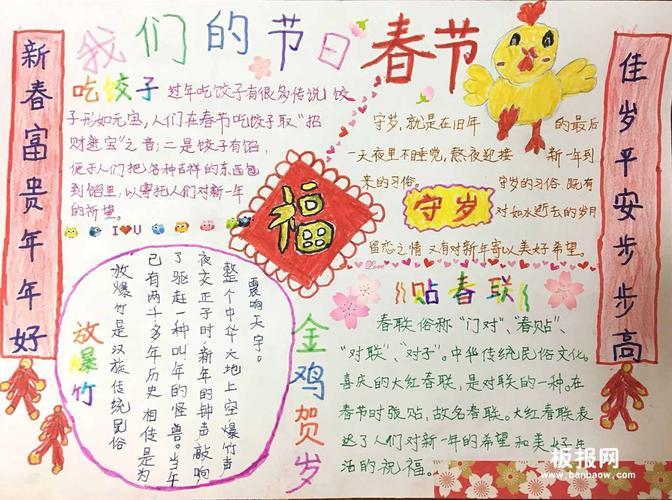 我们的节日
春节
新春富贵年年好
佳岁平安步步高
吃饺子
过年吃饺子有很多传说,饺
子形如元宝,人们在春节吃饺子取“招
财进宝”之音;二是饺子有馅,
便于人们把各种吉祥的东西包
到馅里,以寄托人们对新一年
的祈望。
I U
守岁,就是在旧年 的最后
一天夜里不睡觉,熬夜迎接 新一年到
来的习俗。 守岁的习俗,既有
守岁
对如水逝去的岁月
留恋之情 又有对新年寄以美好希望。
福
Love
放爆竹
放爆竹是汉族传统民俗
已有两千多年历史 相传是为
了驱赶一种叫年的怪兽。当午
夜交正子时,新年的钟声敲响
整个中华大地上空爆竹声
震响天宇。
金鸡贺岁
贴春联
春联俗称“门对”、“春贴”、
“对联”、“对子”。中华传统民俗文化。
喜庆的大红春联,是对联的一种。在
春节时张贴,故名春联。大红春联表
达了人们对新一年的希望和美好生
活的祝福。
板报网
www.banbaow.com